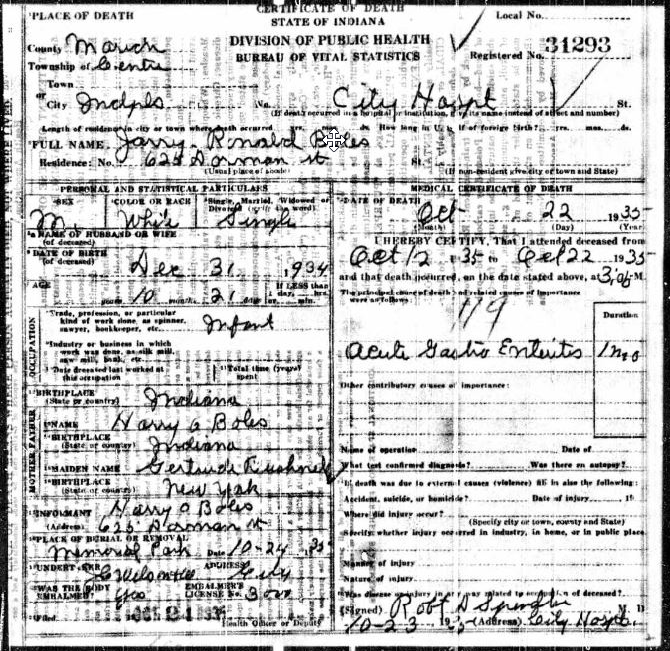 CERTIFICATE OF DEATH
PLACE OF DEATH
STATE OF INDIANA
Local No.
County Marion
DIVISION OF PUBLIC HEALTH
Registered No. 31293
Township of Centre
BUREAU OF VITAL STATISTICS
Town
or
City Indpls No. City Hospt St.
(If death occurred in a hospital or institution, give its name instead of street and number)
Length of residence in city or town where death occurred yrs. ds. How long in U. S. if of foreign birth? yrs. mos. ds.
FULL NAME Ronald Boles
Residence: No. 625 Dorman st St.
(Usual place of abode) (If non-resident give city or town and State)
PERSONAL AND STATISTICAL PARTICULARS
SEX COLOR OR RACE Single, Married, Widowed or Divorced (write the word)
M White Single
NAME OF HUSBAND OR WIFE
(of deceased)
DATE OF BIRTH
(of deceased) Dec 31 1934
AGE If LESS than
years 10 months 21 days
Trade, profession, or particular
kind of work done, as spinner,
sawyer, bookkeeper, etc. Infant
Industry or business in which
work was done, as silk mill,
saw mill, bank, etc.
Date deceased last worked at
this occupation
Total time (years)
spent
OCCUPATION
BIRTHPLACE
(State or country) Indiana
FATHER
NAME Harry O Boles
BIRTHPLACE
(State or country) Indiana
MOTHER
MAIDEN NAME Gertrude
BIRTHPLACE
(State or country) New York
INFORMANT Harry O Boles
(Address) 625 Dorman st
PLACE OF BURIAL OR REMOVAL
Memorial Park Date 10-24 35
UNDERTAKER ADDRESS
City
WAS THE BODY
EMBALMED? Yes
EMBALMER'S
LICENSE No.
Filed
Health Officer or Deputy
MEDICAL CERTIFICATE OF DEATH
DATE OF DEATH
Oct 22 1935
(Month) (Day) (Year)
I HEREBY CERTIFY, That I attended deceased from
Oct 12 35 to Oct 22 1935
and that death occurred, on the date stated above, at M.
The principal cause of death and related causes of importance
were as follows:
119
Duration
Acute Gastro Enteritis 1 mo
Other contributory causes of importance:
Name of operation Date of
What test confirmed diagnosis? Was there an autopsy?
If death was due to external causes (violence) fill in also the following:
Accident, suicide, or homicide? Date of injury 19
Where did injury occur?
(Specify city or town, county and State)
Specify whether injury occurred in industry, in home, or in public place.
Manner of injury
Nature of injury
Was disease or injury in any way related to occupation of deceased?
(Signed) Robt D M. D.
10-23 1935 (Address) City Hospt.